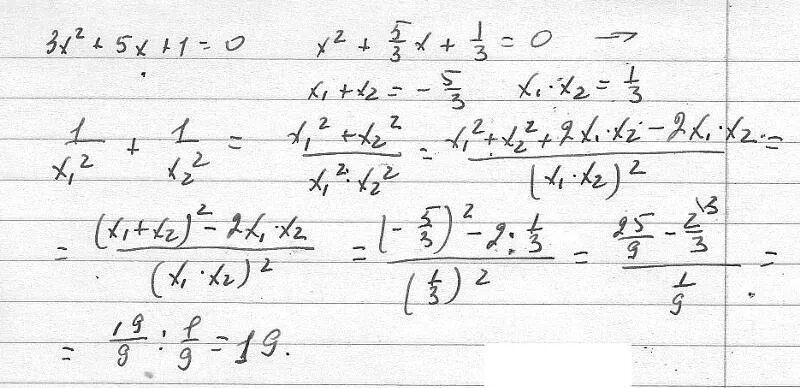 3x² + 5x + 1 = 0   x² + 5/3 x + 1/3 = 0 →
x₁ + x₂ = - 5/3   x₁ · x₂ = 1/3
1/x₁² + 1/x₂² = (x₁² + x₂²)/(x₁² · x₂²) = (x₁² + x₂² + 2x₁ · x₂ - 2x₁ · x₂)/(x₁ · x₂)² =
= ((x₁ + x₂)² - 2x₁ · x₂)/(x₁ · x₂)² = ((- 5/3)² - 2 · 1/3)/(1/3)² = (25/9 - 2\3/3)/(1/9) =
= 19/9 : 1/9 = 19.